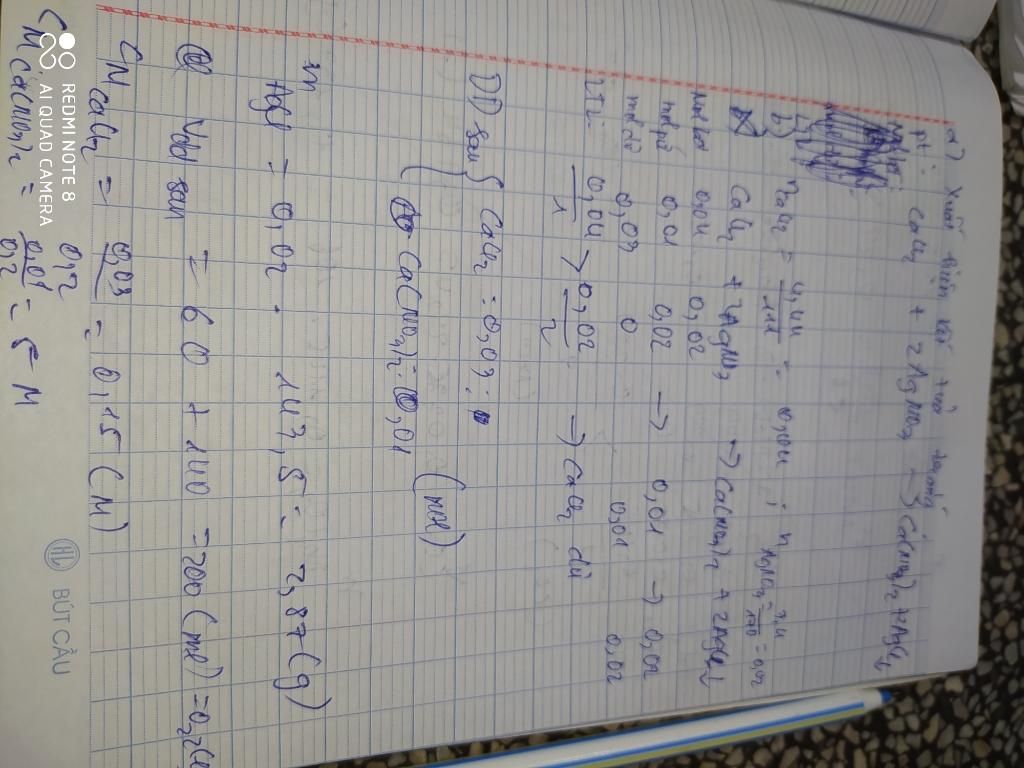 a) Xuất hiện kết tủa trắng
pt: CaCl2 + 2AgNO3 → Ca(NO3)2 + 2AgCl↓
b) nCaCl2 = 4,44/111 = 0,04 ; nAgNO3 = 3,4/170 = 0,02
CaCl2 + 2AgNO3 → Ca(NO3)2 + 2AgCl↓
0,04 0,02
mol pứ 0,01 0,02 → 0,01 → 0,02
0,03 0 0,01 0,02
LTL: 0,04/1 > 0,02/2 → CaCl2 dư
DD sau { CaCl2 : 0,03
Ca(NO3)2 = 0,01 (mol)
mAgCl = 0,02 . 143,5 = 2,87 (g)
Vdd sau = 60 + 140 = 200 (ml) = 0,2 (
CM CaCl2 = 0,03/0,2 = 0,15 (M)
CM Ca(NO3)2 = 0,01/0,2 = 5 M
REDMI NOTE 8
AI QUAD CAMERA
HL BÚT CẦU